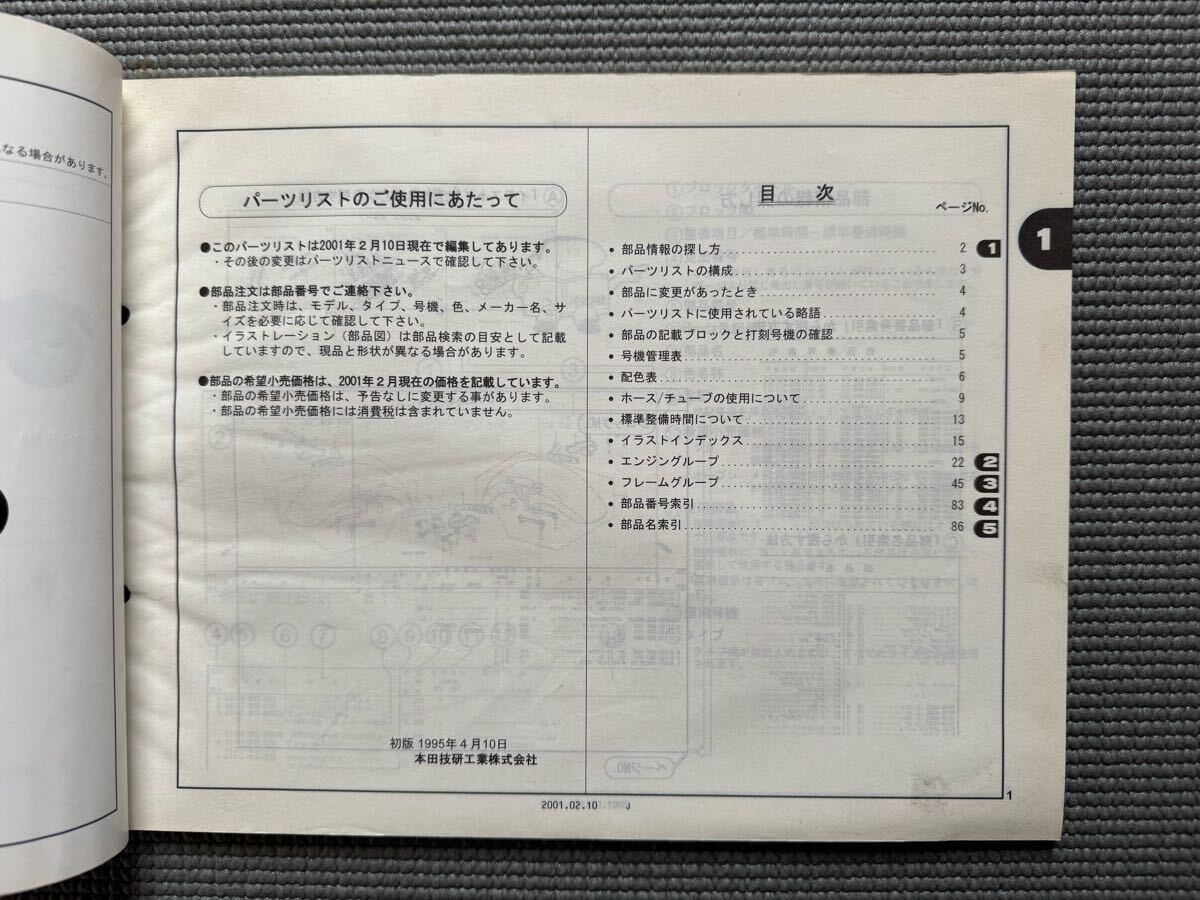 なる場合があります。
パーツリストのご使用にあたって
●このパーツリストは2001年2月10日現在で編集してあります。
・その後の変更はパーツリストニュースで確認して下さい。
●部品注文は部品番号でご連絡下さい。
・部品注文時は、モデル、タイプ、号機、色、メーカー名、サ
イズを必要に応じて確認して下さい。
・イラストレーション（部品図）は部品検索の目安として記載
していますので、現品と形状が異なる場合があります。
●部品の希望小売価格は、2001年2月現在の価格を記載しています。
・部品の希望小売価格は、予告なしに変更する事があります。
・部品の希望小売価格には消費税は含まれていません。
初版 1995年4月10日
本田技研工業株式会社
目 次
ページNo.
• 部品情報の探し方 2 1
• パーツリストの構成 3
• 部品に変更があったとき 4
• パーツリストに使用されている略語 4
• 部品の記載ブロックと打刻号機の確認 5
• 号機管理表 5
• 配色表 6
• ホース/チューブの使用について 9
• 標準整備時間について 13
• イラストインデックス 15
• エンジングループ 22 2
• フレームグループ 45 3
• 部品番号索引 83 4
• 部品名索引 86 5
1
2001.02.10 J
1